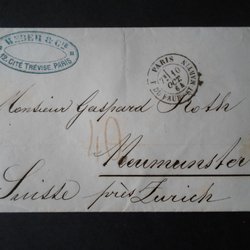 WEBER & Cie
12, CITÉ TRÉVISE, PARIS
PARIS
10
OCT
Monsieur Gaspard Roth
Neumunster
Suisse près Zurich